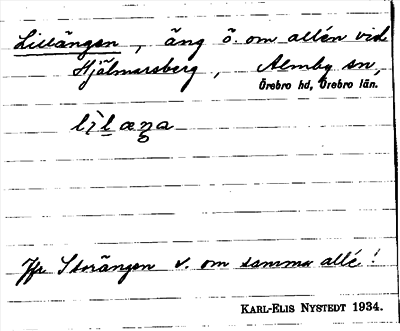 Lillängen, äng ö. om allén vid
Hjälmarsberg, Almby sn,
Örebro hd, Örebro län.
lìlæŋa
Jfr Storängen v. om samma allé!
KARL-ELIS NYSTEDT 1934.